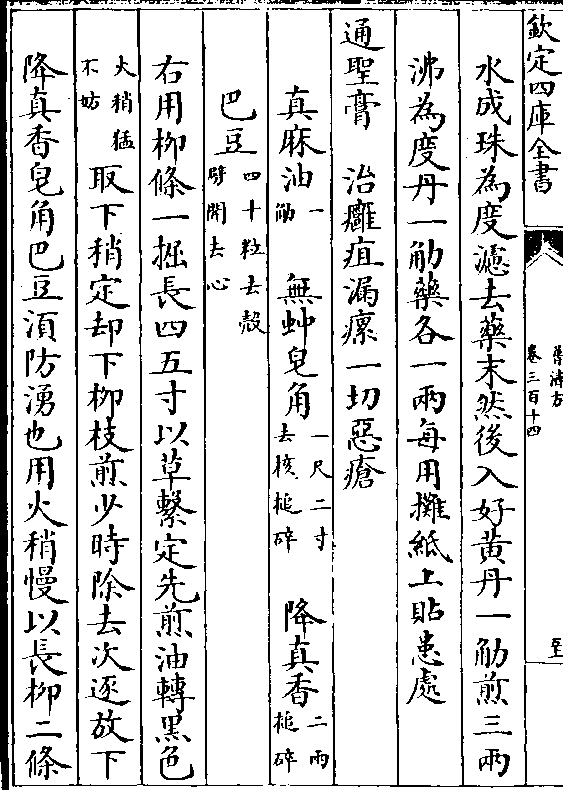 欽定四庫全書
普濟方
卷三百十四
水成珠為度濾去藥末然後入好黃丹一觔煎三兩
沸為度丹一觔藥各一兩每用攤紙上貼患處
通聖膏　治癰疽漏瘰一切惡瘡
真麻油一觔　無蚛皂角一尺二寸去核槌碎　降真香二兩槌碎
巴豆四十粒去殼劈開去心
右用柳條一掘長四五寸以草繫定先煎油轉黑色
火稍猛不妨取下稍定却下柳枝煎少時除去次逐放下
降真香皂角巴豆湏防湧也用火稍慢以長柳二條